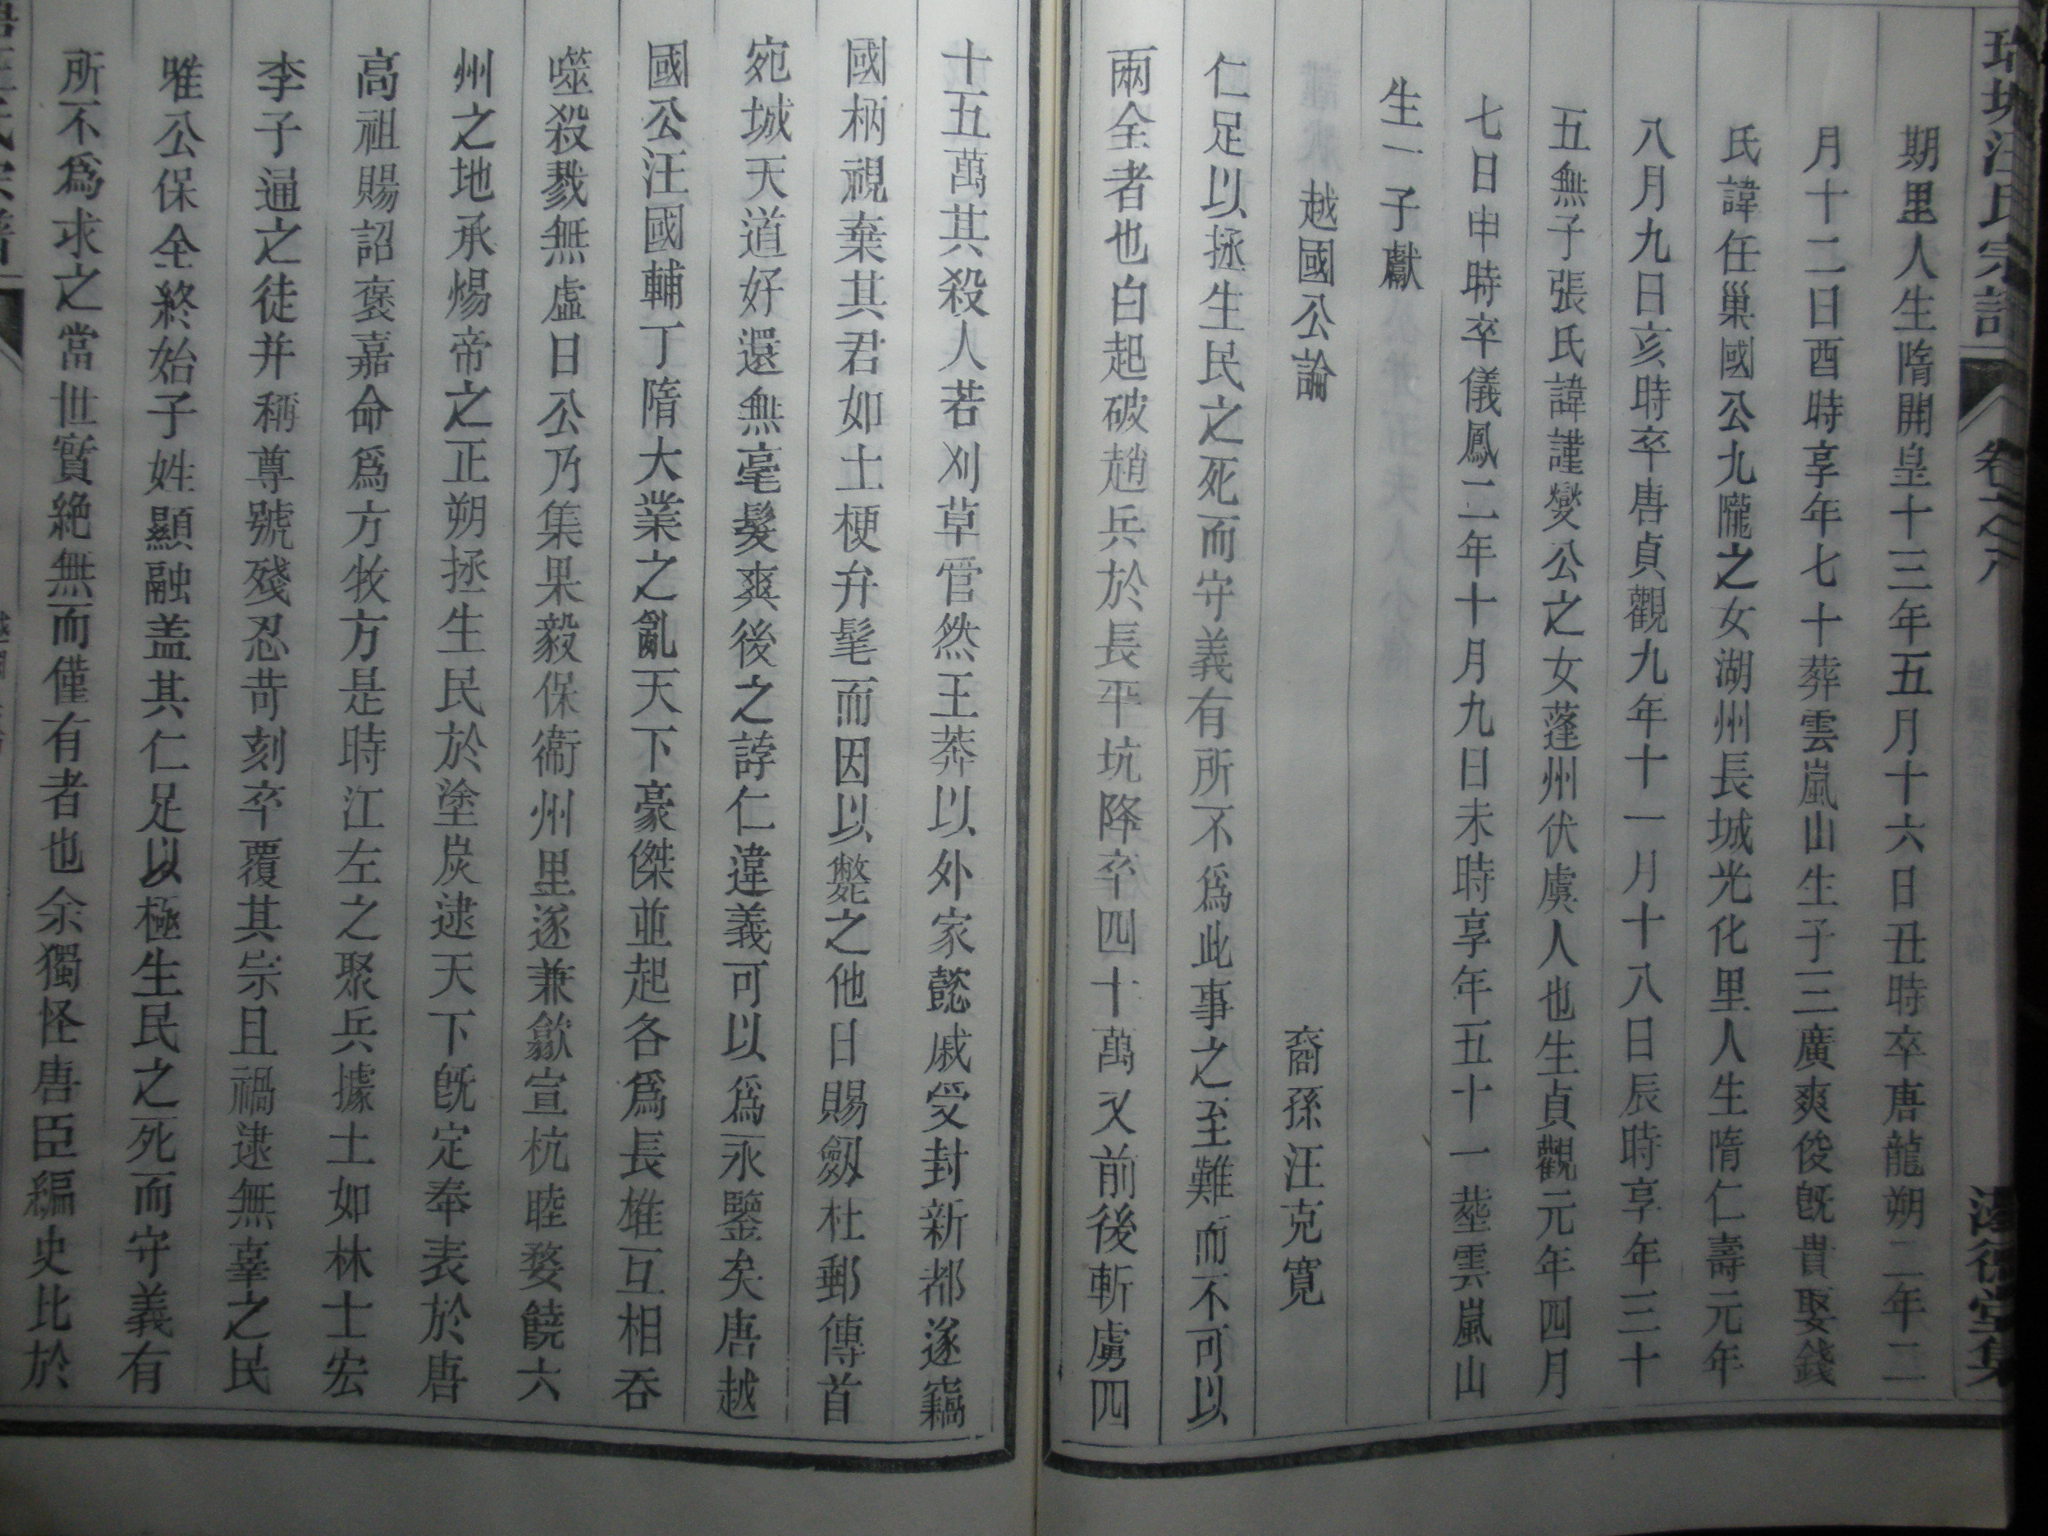 汪氏宗譜 卷之八
期里人生隋開皇十三年五月十六日丑時卒唐龍朔二年二
月十二日酉時享年七十葬雲嵐山生子三廣爽俊旣貴娶錢
氏諱任巢國公九隴之女湖州長城光化里人生隋仁壽元年
八月九日亥時卒唐貞觀九年十一月十八日辰時享年三十
五無子張氏諱謹燮公之女蓬州伏虞人也生貞觀元年四月
七日申時卒儀鳳二年十月九日未時享年五十一塟雲嵐山
生一子獻
越國公論 裔孫汪克寬
仁足以拯生民之死而守義有所不爲此事之至難而不可以
兩全者也白起破趙兵於長平坑降卒四十萬又前後斬虜四
十五萬其殺人若刈草菅然王莽以外家懿戚受封新都遂竊
國柄視棄其君如土梗弁髦而因以斃之他日賜劔杜郵傳首
宛城天道好還無毫髮爽後之誖仁違義可以爲永鑒矣唐越
國公汪國輔丁隋大業之亂天下豪傑並起各爲長雄互相吞
噬殺戮無虛日公乃集果毅保衞州里遂兼歙宣杭睦婺饒六
州之地承煬帝之正朔拯生民於塗炭逮天下旣定奉表於唐
高祖賜詔褒嘉命爲方牧方是時江左之聚兵據土如林士宏
李子通之徒并稱尊號殘忍苛刻卒覆其宗且禍逮無辜之民
唯公保全終始子姓顯融盖其仁足以極生民之死而守義有
所不爲求之當世實絶無而僅有者也余獨怪唐臣編史比於